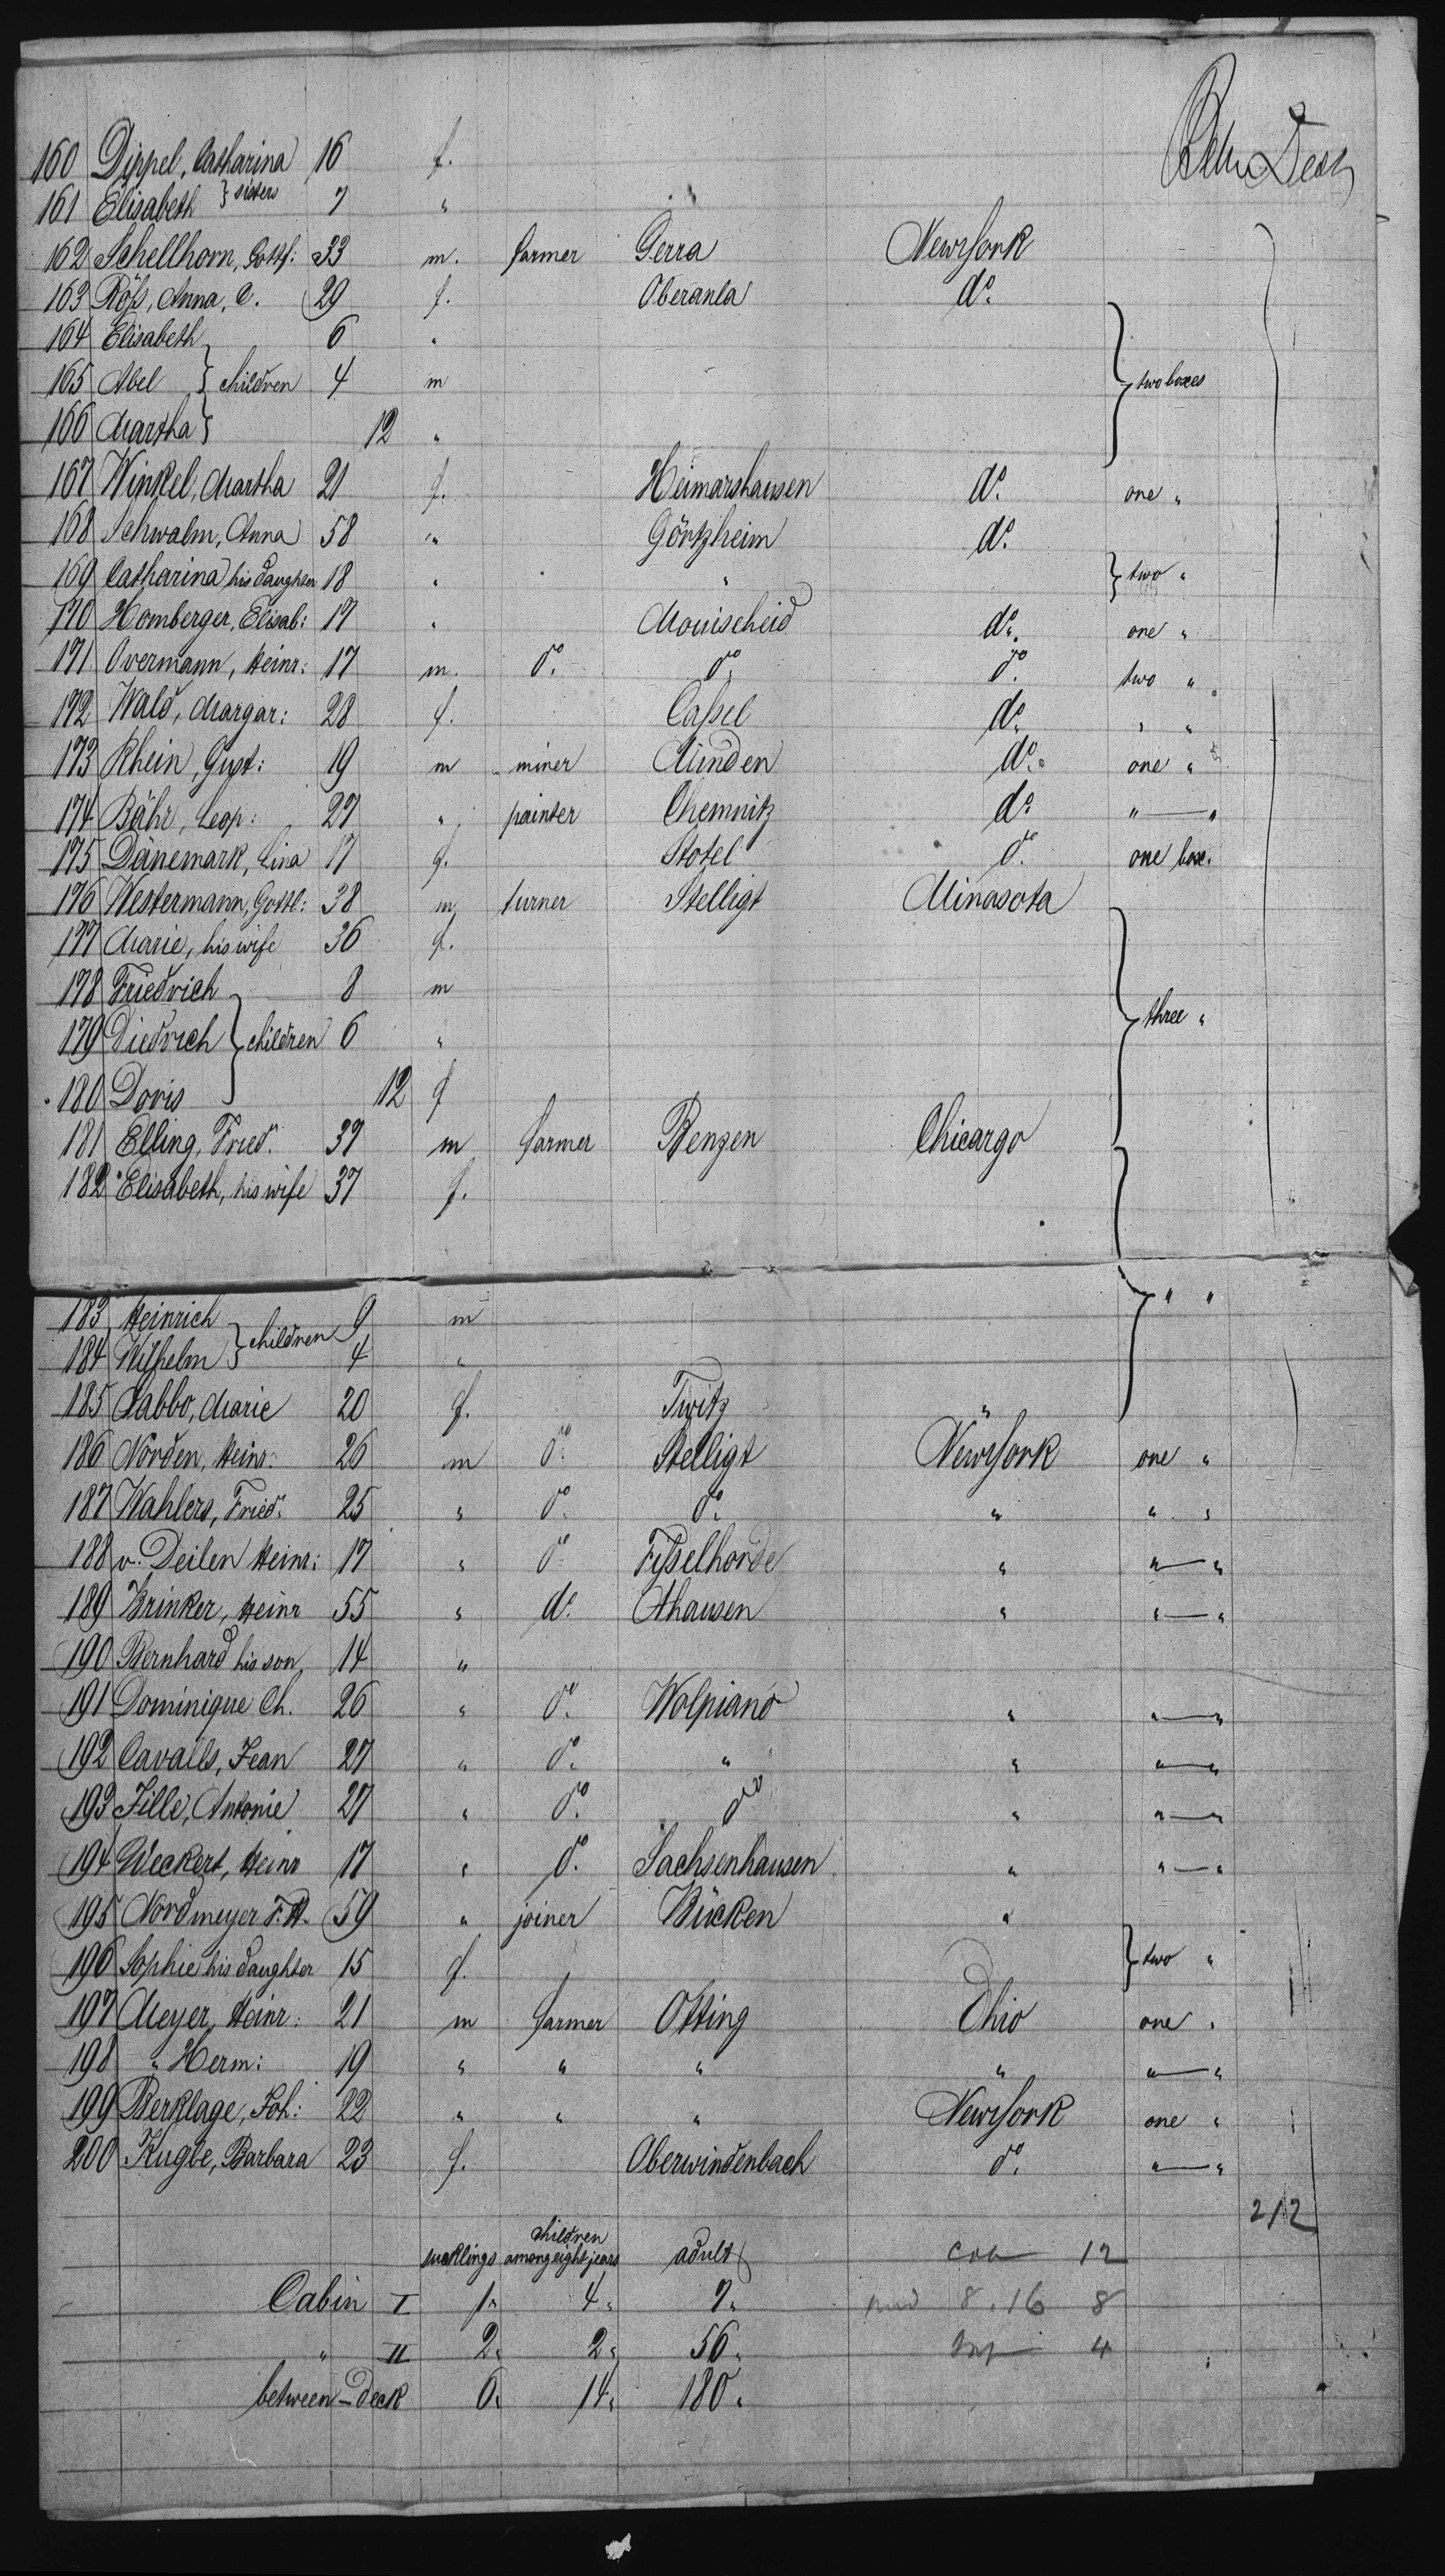 Betw Deck
160 Dippel, Catharina 16 f.
161 Elisabeth } sisters 7 "
162 Schellhorn, Gottf: 33 m. farmer Gerra NewYork
163 Röſs, Anna, C. 29 f. Oberaula do.
164 Elisabeth 6 "
165 Abel } children 4 m } two boxes
166 Martha 12 "
167 Winkel, Martha 21 f. Heimarshausen do. one "
168 Schwalm, Anna 58 " Görtzheim do.
169 Catharina his daughter 18 " " } two "
170 Homberger, Elisab: 17 " Mouischeid do. one "
171 Overmann, Heinr: 17 m. do. do. do. two "
172 Wald, Margar: 28 f. Caſsel do. " "
173 Rhein, Gust: 19 m miner Minden do. one "
174 Bähr, Leop: 27 " painter Chemnitz do. " — "
175 Dänemark, Lina 17 f. Stotel do. one box.
176 Westermann, Gottl: 38 m turner Stelligt Minasota
177 Marie, his wife 36 f.
178 Friedrich 8 m
179 Diedrich } children 6 " } three "
180 Doris 12 f
181 Elling, Fried: 37 m farmer Benzen Chicargo
182 Elisabeth, his wife 37 f.
183 Heinrich 9 m } " "
184 Wilhelm } children 4 "
185 Labbo, Marie 20 f. Twitz "
186 Norden, Heinr: 26 m do. Stelligt NewYork one "
187 Wahlers, Fried: 25 " do. do. " " "
188 v. Deilen Heinr: 17 " do Fiſselhorde " " — "
189 Brinker, Heinr 55 " do. Ahausen " " — "
190 Bernhard his son 14 "
191 Dominique Ch. 26 " do. Wolpiano " " — "
192 Cavails, Jean 27 " do. " " " — "
193 Fille, Antonie 27 " do. do " " — "
194 Weckert, Heinr 17 " do. Sachsenhausen " " — "
195 Nordmeyer F. H. 59 " joiner Bücken "
196 Sophie his daughter 15 f. } two "
197 Meyer, Heinr: 21 m farmer Otting Ohio one "
198 " Herm: 19 " " " " " — "
199 Berklage, Joh: 22 " " " NewYork one "
200 Kugle, Barbara 23 f. Oberwindenbach do. " — "
212
sucklings children among eight jears adult
12
Cabin I 1. 4. 7. 8.16 8
" II 2. 2. 56. 4
between-deck 6. 14. 180.